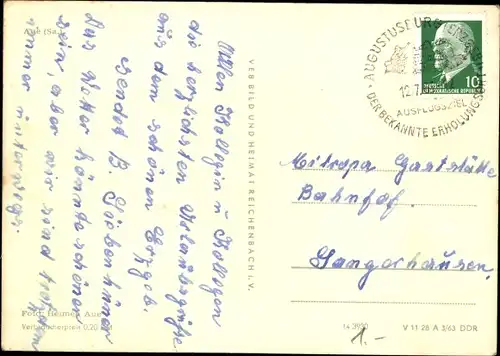 Aue (Sa.)
Allen Kollegin u. Kollegen
die herzlichsten Urlaubsgrüße
aus dem schönen Erzgeb.
sendet B. Siebenhüner
Das Wetter könnte schöner
sein, aber wir sind trotzdem
immer unterwegs.
Foto: Heimer, Aue
Verbraucherpreis 0,20
VEB BILD UND HEIMAT REICHENBACH I. V.
AUGUSTUSBURG
12.7.
AUSFLUGSZIEL
DER BEKANNTE ERHOLUNGS
10
DEUTSCHE
DEMOKRATISCHE REPUBLIK
Mitropa Gaststätte
Bahnhof.
Sangerhausen
14 3930
V 11 28 A 3/63 DDR
1.-